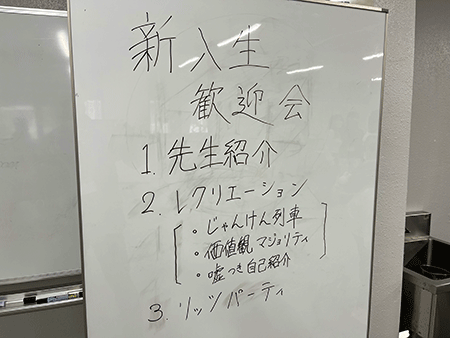 新入生
歓迎会
1. 先生紹介
2. レクリエーション
・じゃんけん列車
・価値観マジョリティ
・嘘つき自己紹介
3. リッツパーティ